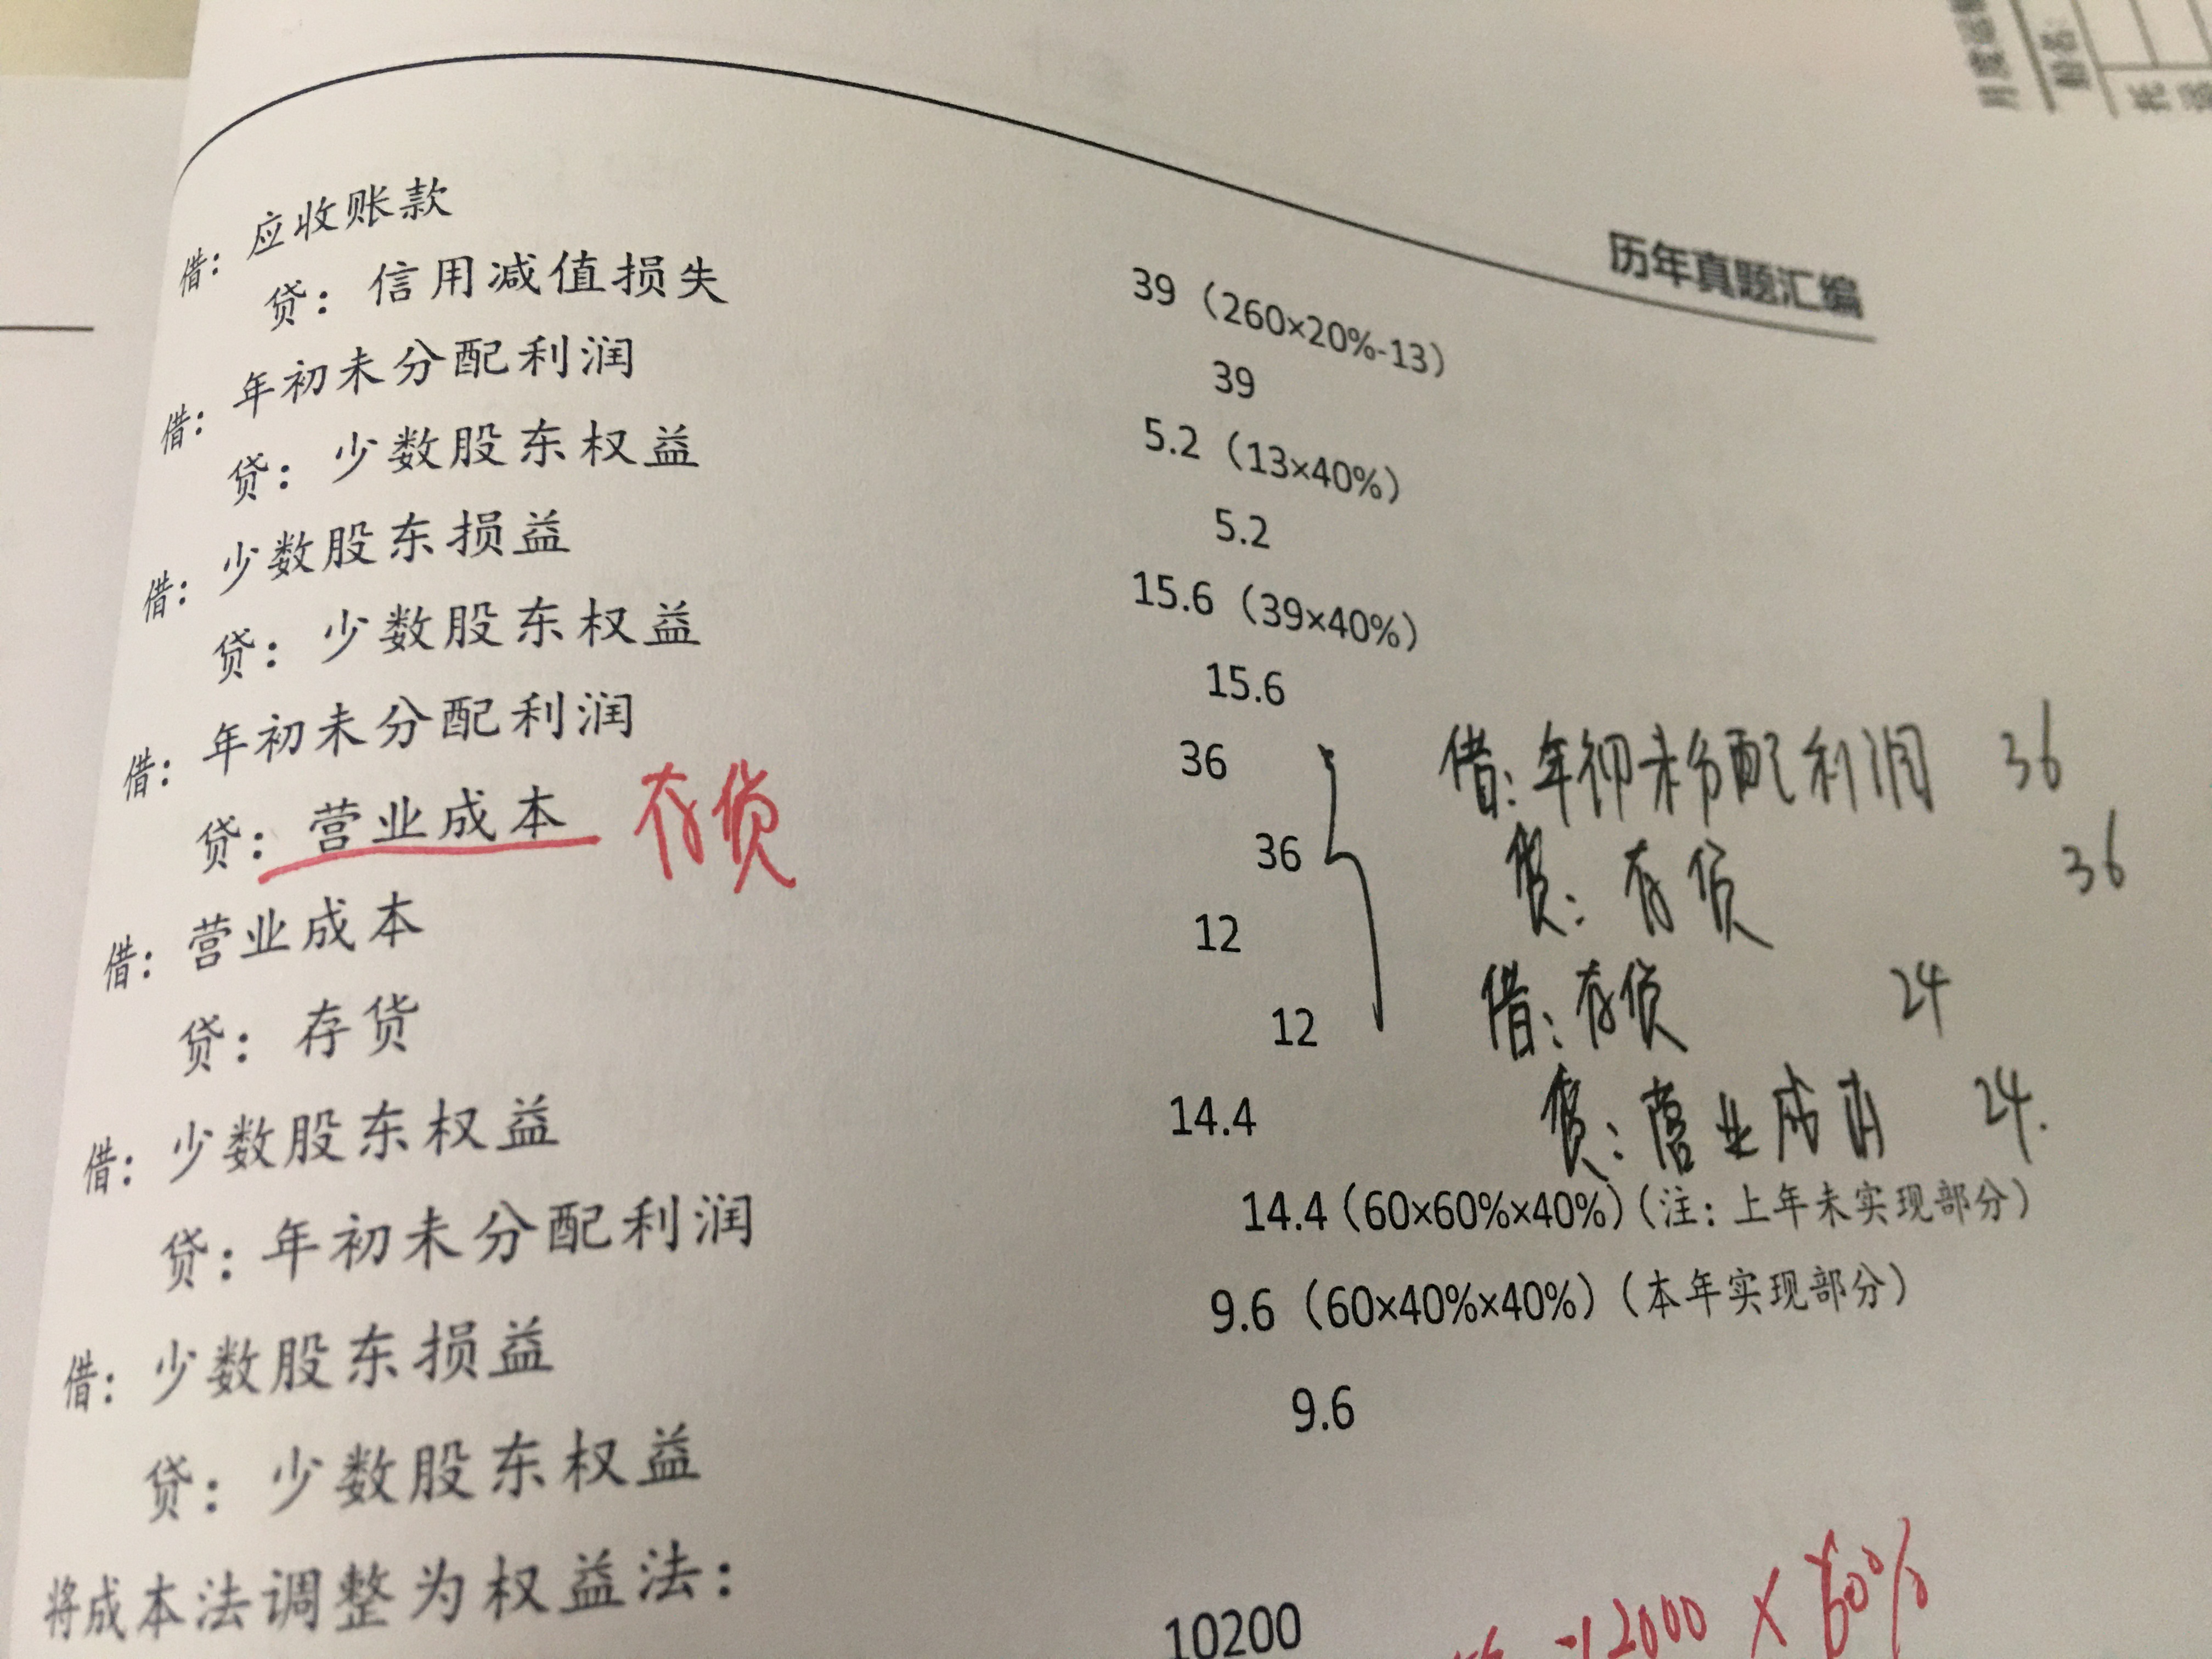 历年真题汇编
借：应收账款 39（260×20%-13）
贷：信用减值损失 39
借：年初未分配利润 5.2（13×40%）
贷：少数股东权益 5.2
借：少数股东损益 15.6（39×40%）
贷：少数股东权益 15.6
借：年初未分配利润 36
贷：营业成本 存货 36
借：营业成本 12
贷：存货 12
借：年初未分配利润 36
贷：存货 36
借：存货 24
贷：营业成本 24.
借：少数股东权益 14.4
贷：年初未分配利润 14.4（60×60%×40%）（注：上年未实现部分）
借：少数股东损益 9.6（60×40%×40%）（本年实现部分）
贷：少数股东权益 9.6
将成本法调整为权益法：
10200
-12000 × 60%